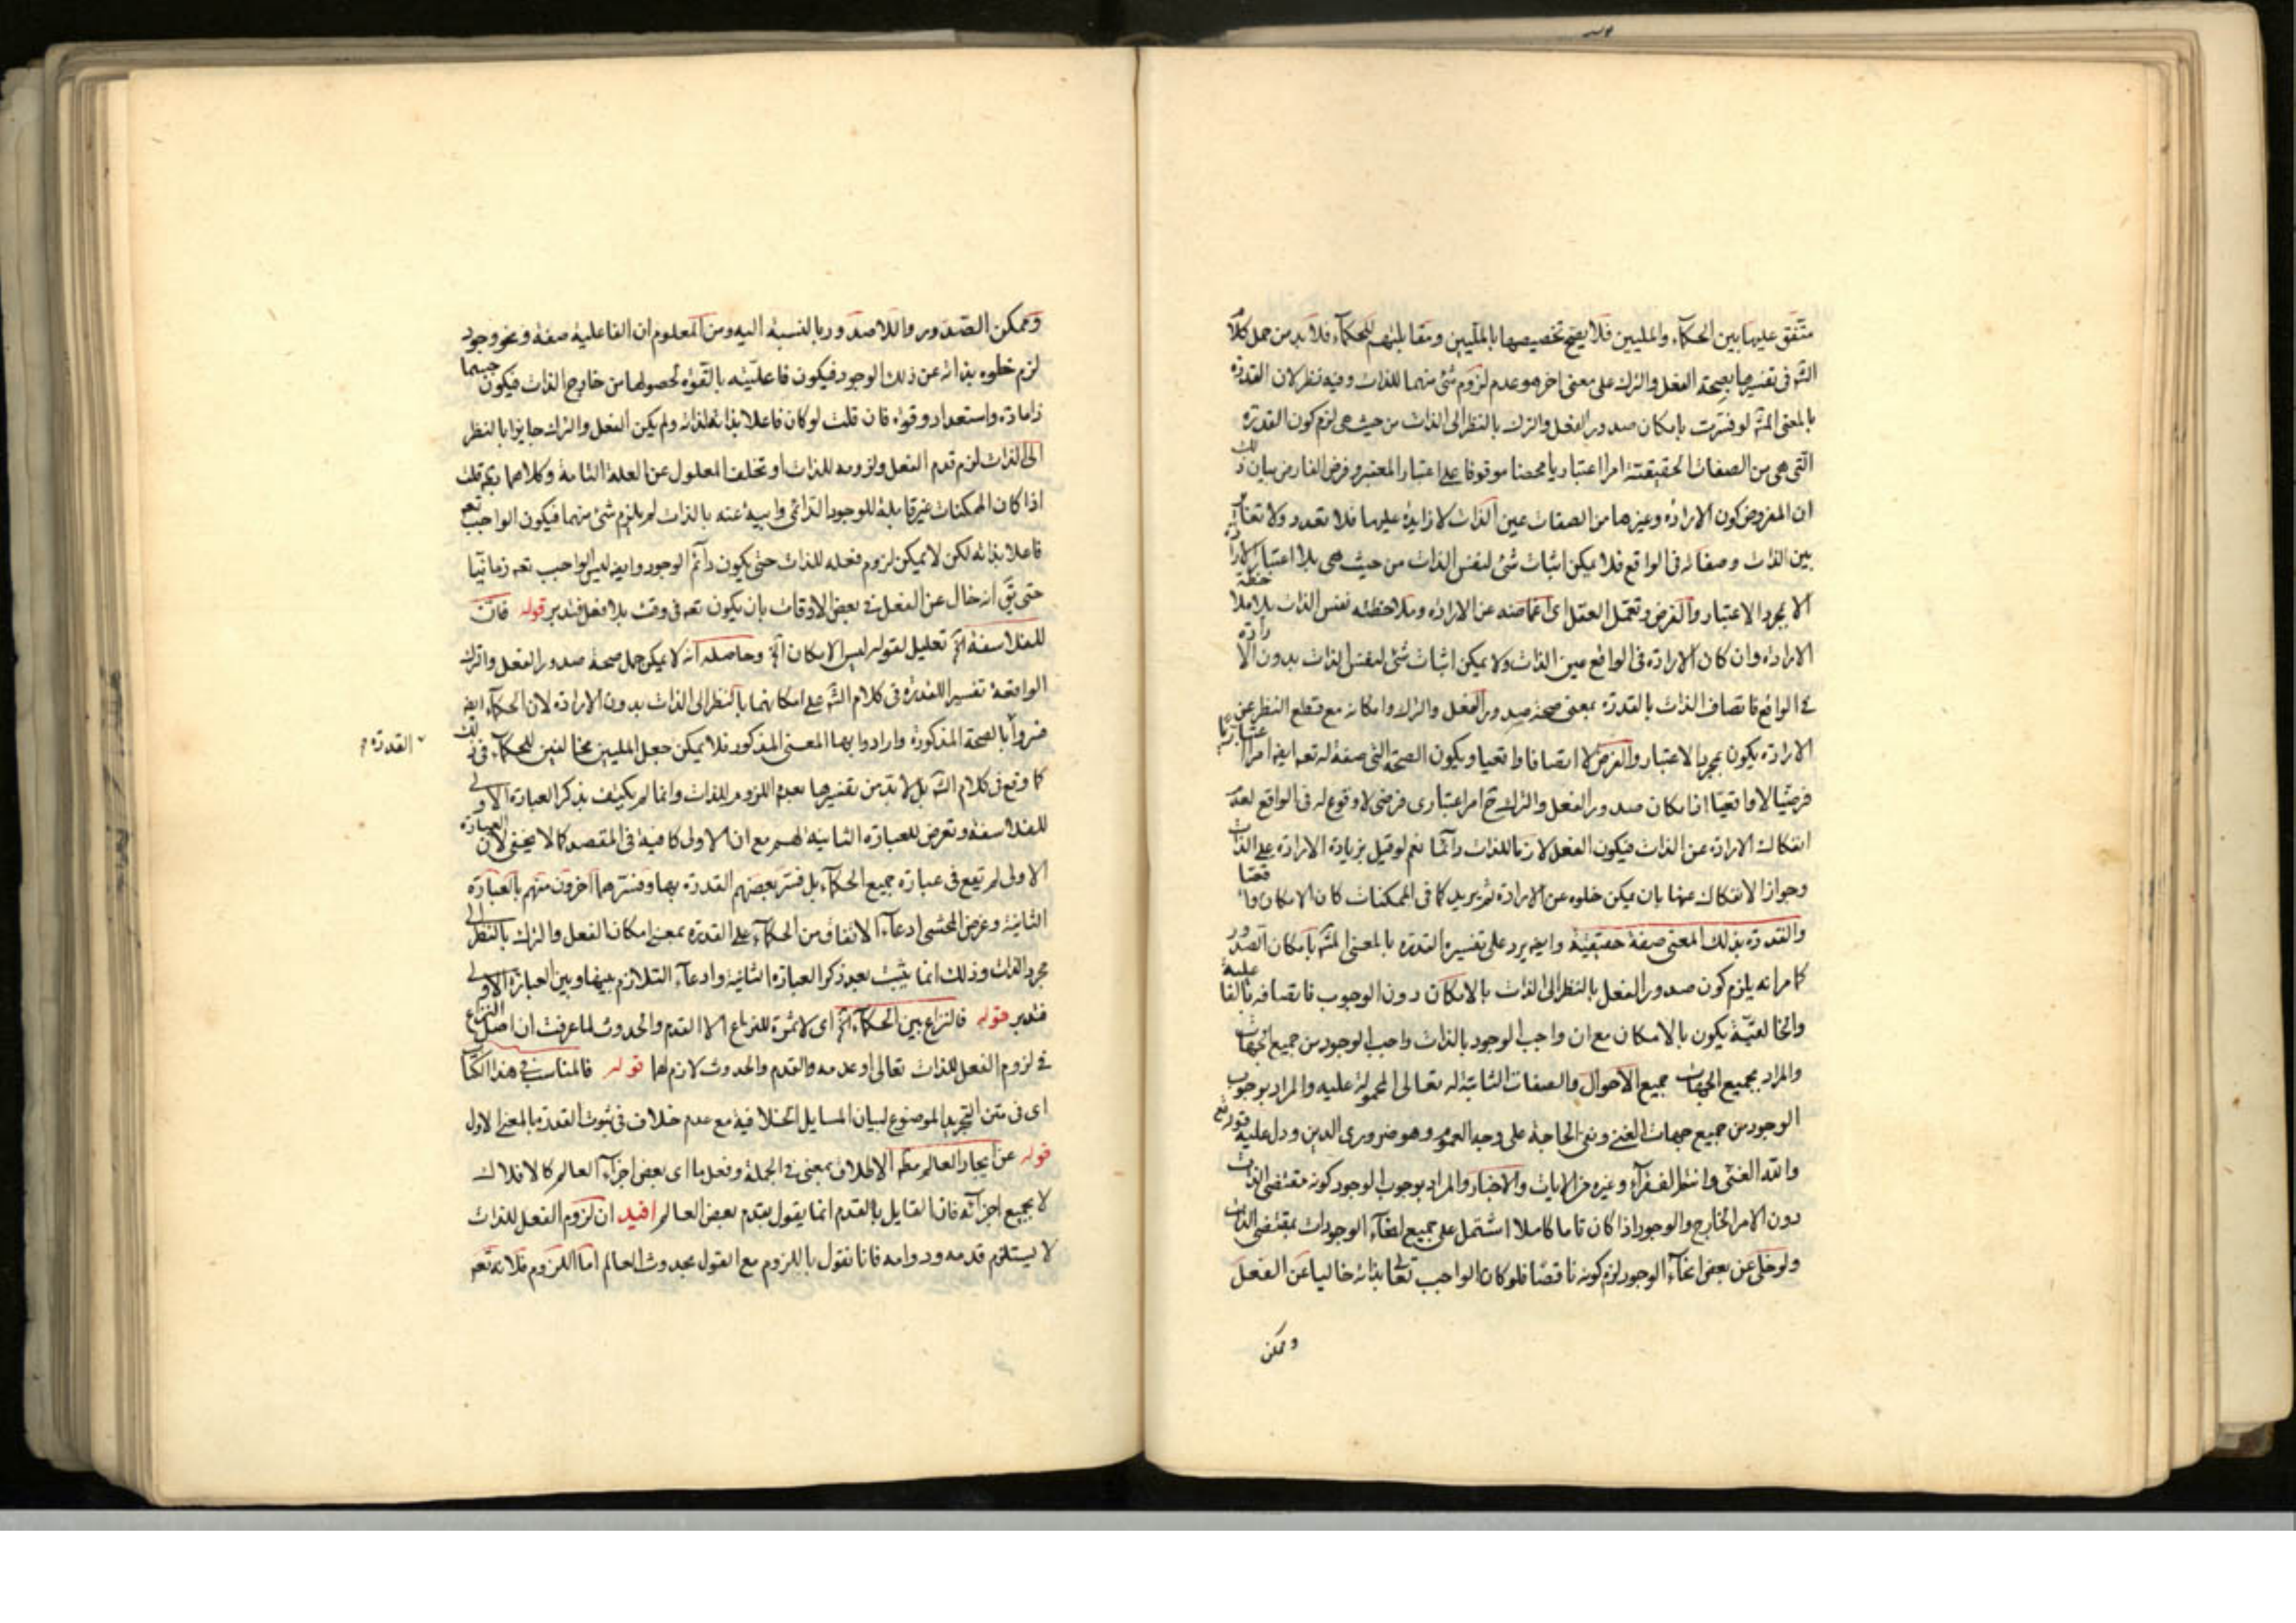 متفق عليها بين الحكماء والمليين فلا يصح تخصيصها بالمليين ومقابلتهم للحكماء فلا بد من حمل كلام
الشه فى تفسيرها بصحة الفعل والترك على معنى اخر هو عدم لزوم شئ منهما للذات وفيه نظر لان القدرة
بالمعنى المشه لو فسرت بامكان صدور الفعل والترك بالنظر الى الذات من حيث هى لزم كون القدرة
التى هى من الصفات الحقيقية امرا اعتباريا محضا موقوفا على اعتبار المعتبر وفرض الفارض بيان ذلك
ان المفروض كون الارادة وغيرها من الصفات عين الذات لا زايدة عليها فلا تعدد ولا تغاير
بين الذات وصفاته فى الواقع فلا يمكن اثبات شئ لنفس الذات من حيث هى بلا اعتبار الارادة
الا بمجرد الاعتبار والفرض وتعمل العقل اى اغماضه عن الارادة وملاحظته نفس الذات بلا ملاحظة
الارادة وان كان الارادة فى الواقع عين الذات ولا يمكن اثبات شئ لنفس الذات بدون الارادة
فى الواقع فاتصاف الذات بالقدرة بمعنى صحة صدور الفعل والترك وامكانه مع قطع النظر عن
الارادة يكون بمجرد الاعتبار والفرض لا اتصافا واقعيا ويكون الصحة التى صفة له تعه ايضه امرا اعتباريا
فرضيا لا واقعيا اذ امكان صدور الفعل والترك ح امر اعتبارى فرضى لا وقوع له فى الواقع لعدم
انفكاك الارادة عن الذات فيكون الفعل لازما للذات دائما نعم لو قيل بزيادة الارادة على الذات
وجواز الانفكاك عنها بان يمكن خلوه عن الارادة ثم يريد كما فى الممكنات كان الامكان واقعيا
والقدرة بذلك المعنى صفة حقيقية وايضه يرد على تفسير القدرة بالمعنى المشه بامكان الصدور
كما مر انه يلزم كون صدور الفعل بالنظر الى الذات بالامكان دون الوجوب فاتصافه بالفاعلية
والخالقية يكون بالامكان مع ان واجب الوجود بالذات واجب الوجود من جميع الجهات
والمراد بجميع الجهات جميع الاحوال والصفات الثابتة له تعالى المحمولة عليه والمراد بوجوب
الوجود من جميع جهات الغنى ونفى الحاجة على وجه العموم وهو ضرورى الدين ودل عليه قوله تع
والله الغنى وانتم الفقراء وغيره من الايات والاخبار والمراد بوجوب الوجود كونه مقتضى الذات
دون الامر الخارج والوجود اذا كان تاما كاملا اشتمل على جميع انحاء الوجودات بمقتضى الذات
ولو خلى عن بعض انحاء الوجود لزم كونه ناقصا فلو كان الواجب تعالى بذاته خاليا عن الفعل
وممكن
وممكن الصدور واللاصدور بالنسبة اليه ومن المعلوم ان الفاعلية صفة ونحو وجود
لزم خلوه بذاته عن ذلك الوجود فيكون فاعليته بالقوة لحصولها من خارج الذات فيكون جسما
ذا مادة واستعداد وقوة فان قلت لو كان فاعلا بذاته لذاته ولم يكن الفعل والترك جايزا بالنظر
الى الذات لزم قدم الفعل ولزومه للذات او تخلف المعلول عن العلة التامة وكلاهما قلت
اذا كان الممكنات غير قابلة للوجود الذاتى وابية عنه بالذات لم يلزم شئ منهما فيكون الواجب تعه
فاعلا بذاته لكن لا يمكن لزوم فعله للذات حتى يكون دائم الوجود وايضه ليس الواجب تعه زمانيا
حتى يق انه خال عن الفعل فى بعض الاوقات بان يكون تعه فى وقت بلا فعل فتدبر قوله فان
للفلاسفة الخ تعليل لقوله ليس الامكان الخ وحاصله انه لا يمكن حمل صحة صدور الفعل والترك
الواقعة تفسيرا للقدرة فى كلام الشه على امكانهما بالنظر الى الذات بدون الارادة لان الحكماء ايضه
فسروا بالصحة المذكورة وارادوا بها المعنى المذكور فلا يمكن جعل المليين مخالفين للحكماء فى ذلك
القدرة
كما وقع فى كلام الشه بل لا بد من تفسيرها بعدم اللزوم للذات وانما لم يكتف بذكر العبارة الاولى
للفلاسفة وتعرض للعبارة الثانية لهم مع ان الاولى كافية فى المقصد كما لا يخفى لان العبارة
الاولى لم تقع فى عبارة جميع الحكماء بل فسر بعضهم القدرة بها وفسرها اخرون منهم بالعبارة
الثانية وغرض المحشى ادعاء الاتفاق من الحكماء على القدرة بمعنى امكان الفعل والترك بالنظر الى
مجرد الذات وذلك انما يثبت بعد ذكر العبارة الثانية وادعاء التلازم بينها وبين العبارة الاولى
فتدبر قوله فالنزاع بين الحكماء الخ اى لا ثمرة للنزاع الا القدم والحدوث لما عرفت ان اصل النزاع
فى لزوم الفعل للذات تعالى او عدمه والقدم والحدوث لازم لهما قوله فالمناسب فى هذا الكتاب
اى فى متن التجريد الموضوع لبيان المسايل الخلافية مع عدم خلاف فى ثبوت القدرة بالمعنى الاول
قوله عن ايجاد العالم مطه الاطلاق بمعنى فى الجملة وفعل ما اى بعض اجزاء العالم كالافلاك
لا بجميع اجزائه فان القايل بالقدم انما يقول بقدم بعض العالم افيد ان لزوم الفعل للذات
لا يستلزم قدمه ودوامه فانا نقول باللزوم مع القول بحدوث العالم اما اللزوم فلانه تعه